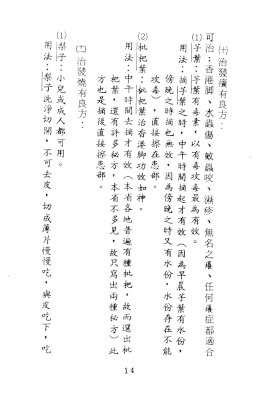 ㈩治發癢有良方：
可治：香港脚、水蟲傷、蚊蟲咬、濕疹、無名之癢、任何癢症都適合
⑴芋葉：芋葉有毒素，以有毒攻毒最為有效。
用法：摘芋葉之時，中午時間摘起才有效（因為早晨芋葉有水份，
傍晚之時摘也無效，因為傍晚之時又有水份，水份存在不能
攻毒），直接擦在患部。
⑵枇杷葉：枇杷葉治香港脚功效如神。
用法：中午時間去摘才有效（本省各地普遍有種枇杷，故而選出枇
杷葉，還有許多秘方，本省不多見，故只寫出兩種秘方）此
方也是摘後直接擦患部。
㈩治發燒有良方：
⑴梨子：小兒或成人都可用。
用法：梨子洗淨切開，不可去皮，切成薄片慢慢吃，與皮吃下，吃
14